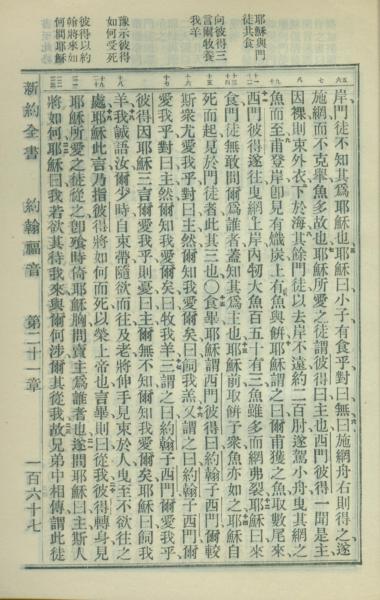 耶穌與門
徒共食
向彼得三
言爾牧養
我羊
豫示彼得
如何受死
彼得以約
翰將來如
何問耶穌
岸門徒不知其爲耶穌也耶穌曰小子有食乎對曰無曰施網舟右則得之遂
施網而不克舉魚多故也耶穌所愛之徒謂彼得曰主也西門彼得一聞是主
因裸則束外衣下於海其餘門徒以去岸不遠約二百肘遂駕小舟曳其網之
魚而至甫登岸卽見有熾炭上有魚與餅耶穌謂之曰爾甫獲之魚取數尾來
西門彼得遂往曳網上岸內牣大魚百五十有三魚雖多而網弗裂耶穌曰來
食門徒無敢問爾爲誰者蓋知其爲主也耶穌前取餅予衆魚亦如之耶穌自
死而起見於門徒者此其三也○食畢耶穌謂西門彼得曰約翰子西門爾較
斯衆尤愛我乎對曰主然爾知我愛爾矣曰飼我羔又謂之曰約翰子西門爾
愛我乎對曰主然爾知我愛爾矣曰牧我羊三謂之曰約翰子西門爾愛我乎
彼得因耶穌三言爾愛我乎則憂曰主爾無不知爾知我愛爾矣耶穌曰飼我
羊我誠語汝爾少時自束帶隨欲而往及老將伸手見束於人曳至不欲往之
處耶穌此言乃指彼得將如何而死以榮上帝也言畢則曰從我彼得轉身見
耶穌所愛之徒從之卽飱時倚耶穌胸問賣主爲誰者也遂問耶穌曰主斯人
將如何耶穌曰我若欲其待我來與爾何涉爾其從我故兄弟中相傳謂此徒
新約全書 約翰福音 第二十一章 一百六十七